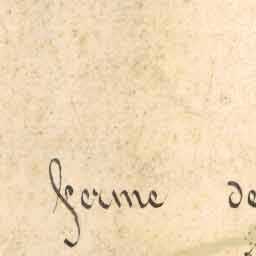 ferme de